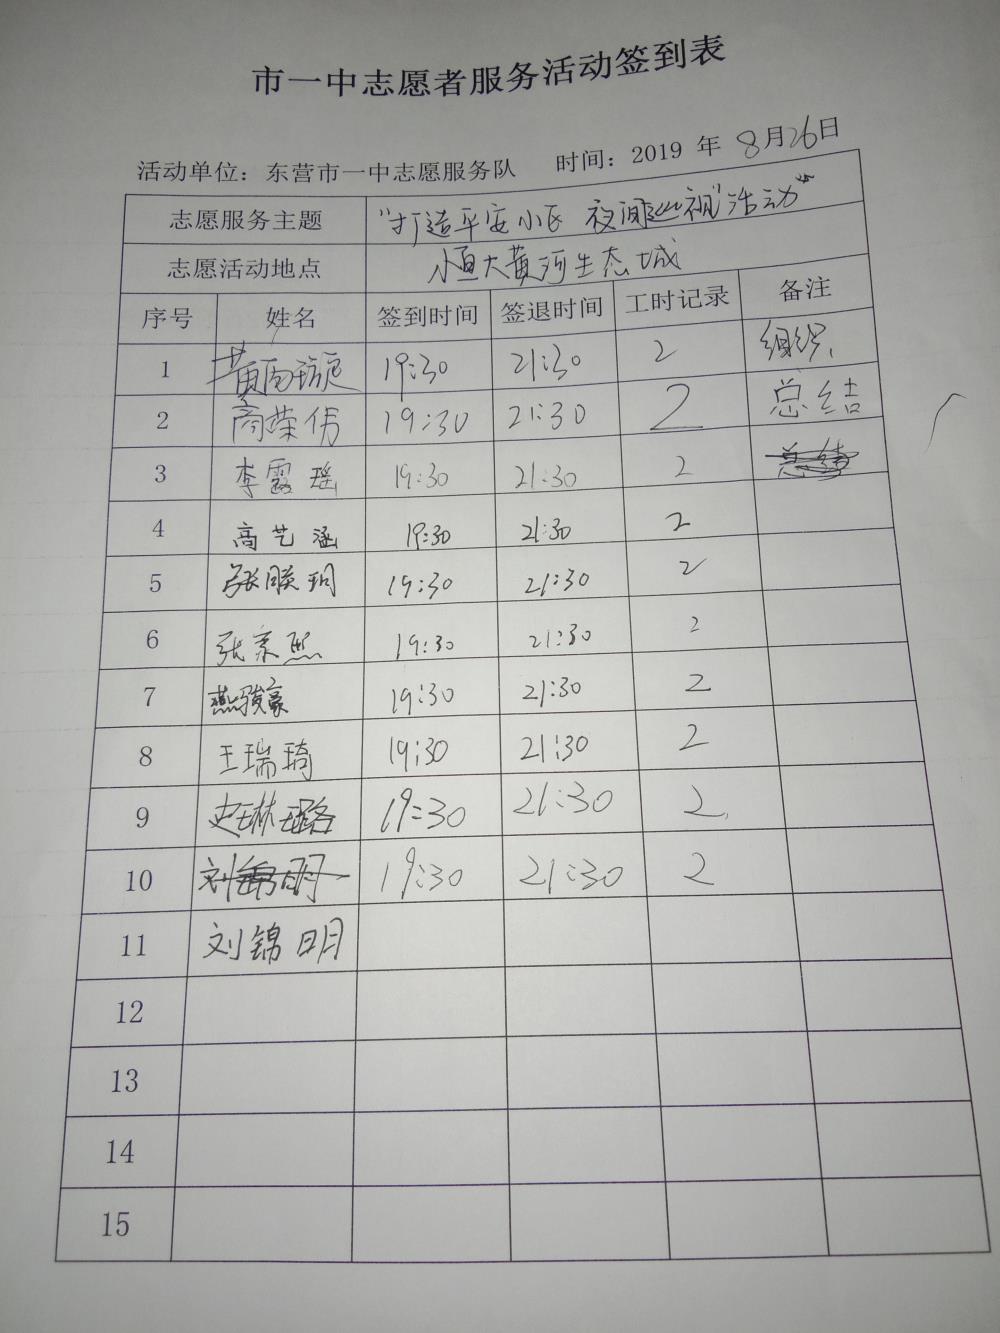 市一中志愿者服务活动签到表
活动单位：东营市一中志愿服务队 时间：2019 年 8月26日
志愿服务主题 “打造平安小区 夜间巡视”活动”
志愿活动地点 恒大黄河生态城
序号 姓名 签到时间 签退时间 工时记录 备注
1 黄雨璇 19:30 21:30 2 组织、
2 商荣伟 19:30 21:30 2 总结
3 李露瑶 19:30 21:30 2 总结
4 高艺涵 19:30 21:30 2
5 张朕玥 19:30 21:30 2
6 张家熙 19:30 21:30 2
7 燕骏豪 19:30 21:30 2
8 王瑞琦 19:30 21:30 2
9 史琳璐 19:30 21:30 2
10 刘锦明 19:30 21:30 2
11 刘锦明
12
13
14
15